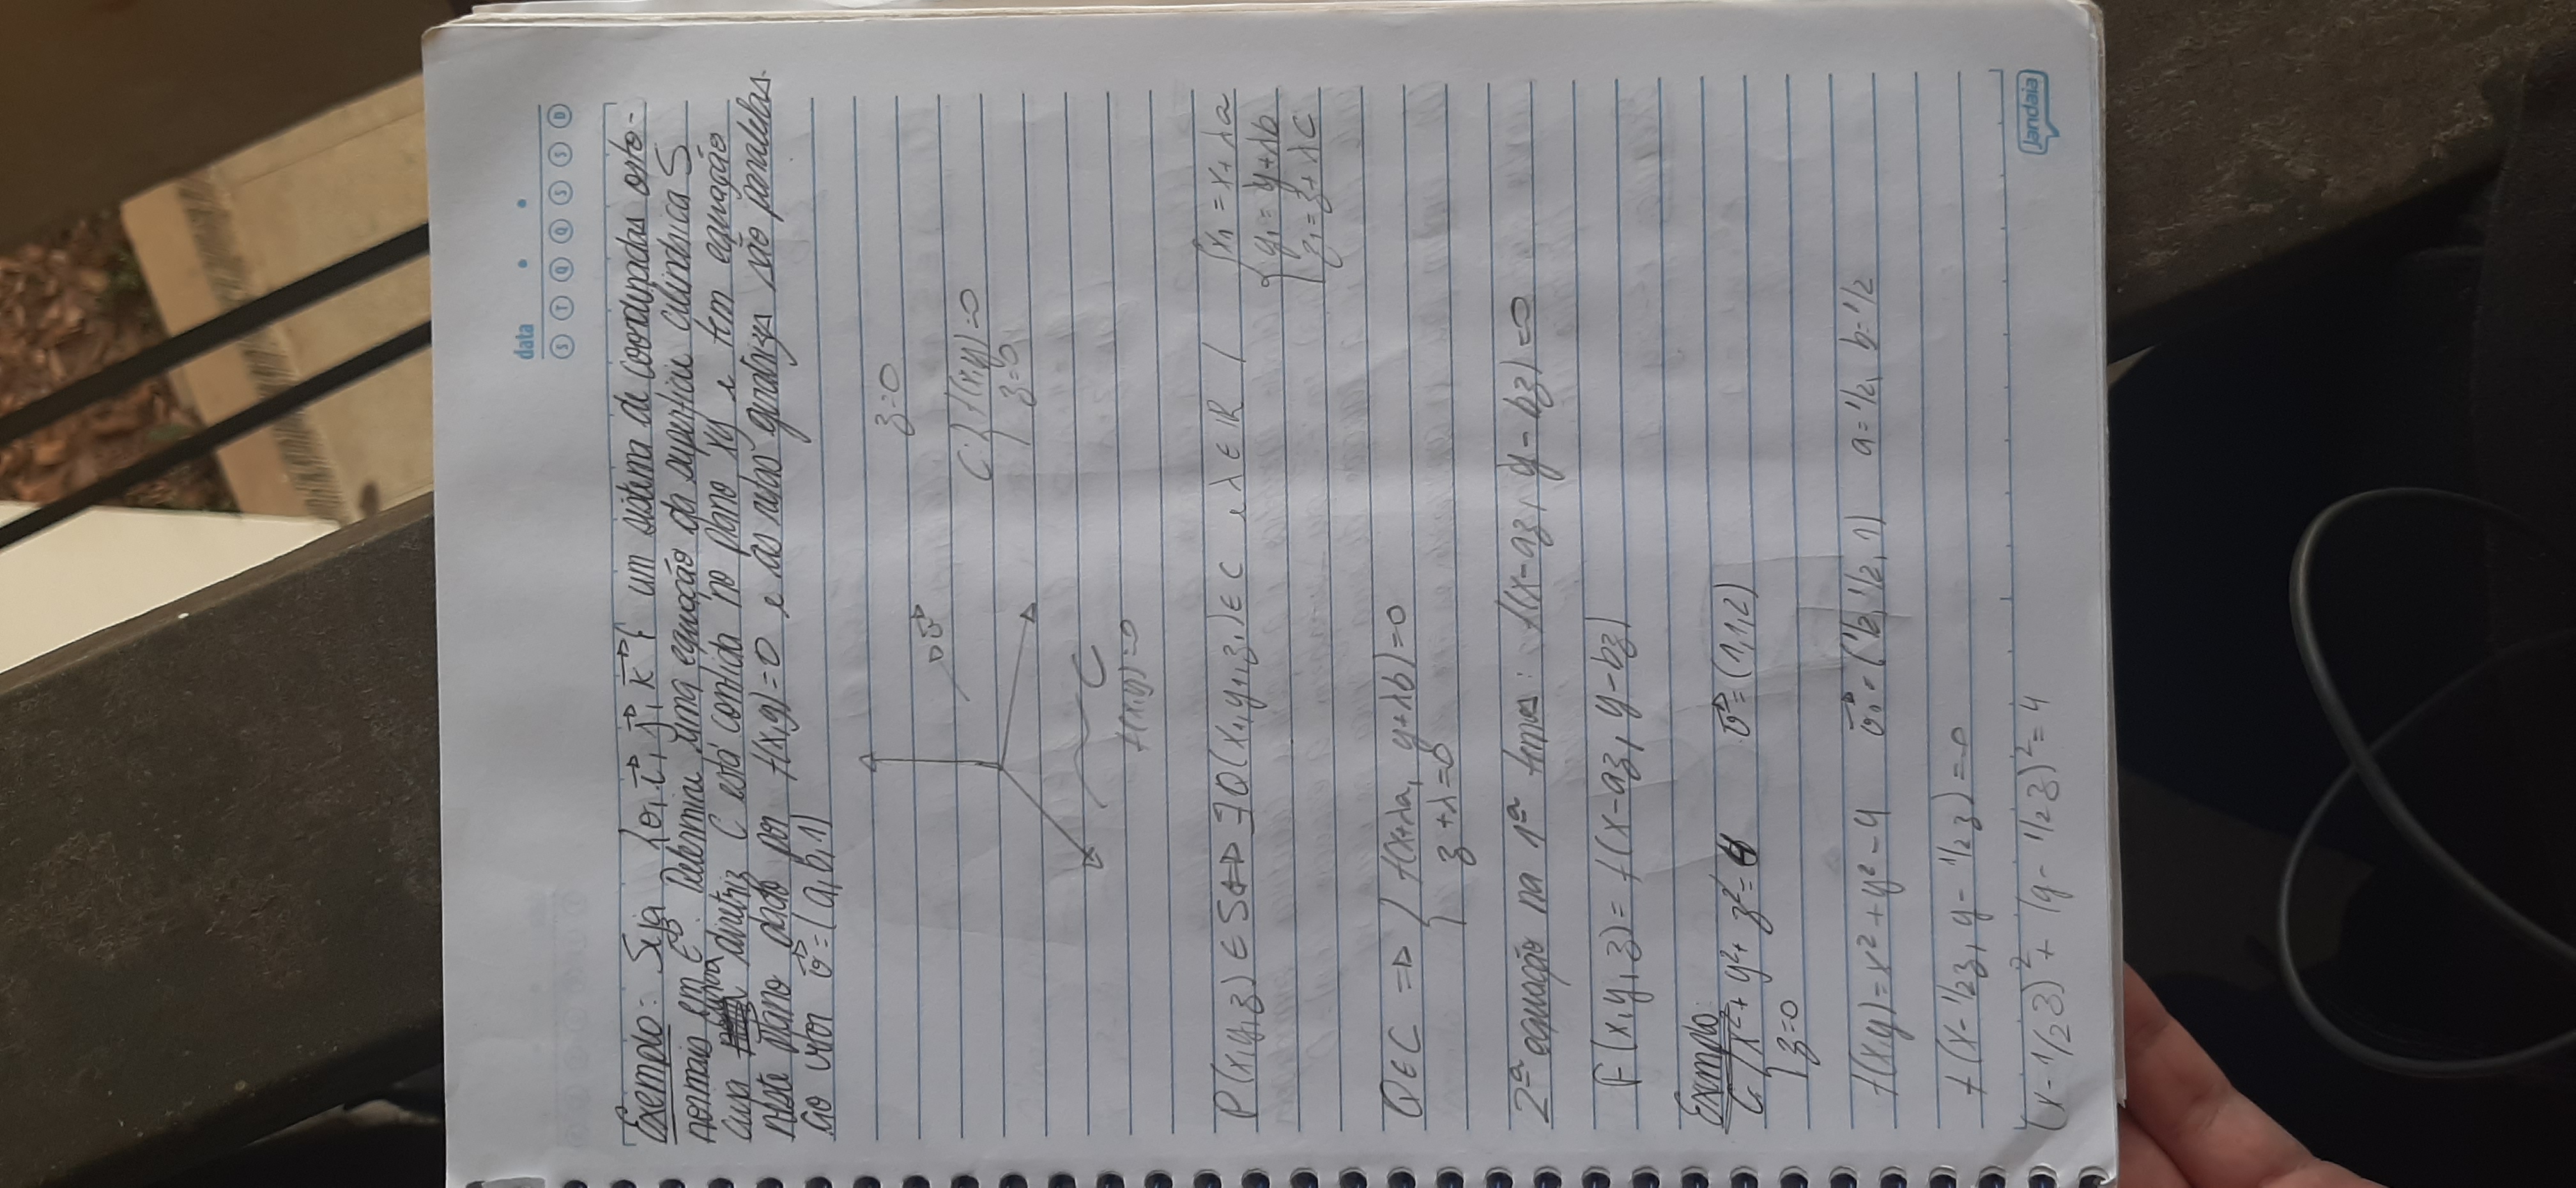 data
S T Q Q S S D
Exemplo: Seja {o, i, j, k} um sistema de coordenadas orto-
normais em E³. Determine uma equação da superfície cilíndrica S
cuja diretriz C está contida no plano xy e tem equação
neste plano dado por f(x,y)=0 e as retas geratrizes são paralelas
ao vetor v⃗=(a,b,1)
z=0
v⃗
C: { f(x,y)=0
z=0
C
f(x,y)=0
P(x,y,z) ∈ S ⇔ ∃Q(x₁,y₁,z₁) ∈ C e λ ∈ R / { x₁=x+λa
y₁=y+λb
z₁=z+λc
Q∈C ⇒ { f(x+λa, y+λb)=0
z+λ=0
2ª equação na 1ª temos: f(x-az, y-bz)=0
F(x,y,z)=f(x-az, y-bz)
Exemplo:
C: { x²+y²+z²=4 v⃗=(1,1,2)
z=0
f(x,y)=x²+y²-4 v⃗₁=(1/2,1/2,1) a=1/2, b=1/2
f(x-1/2z, y-1/2z)=0
(x-1/2z)²+(y-1/2z)²=4
Jandaia